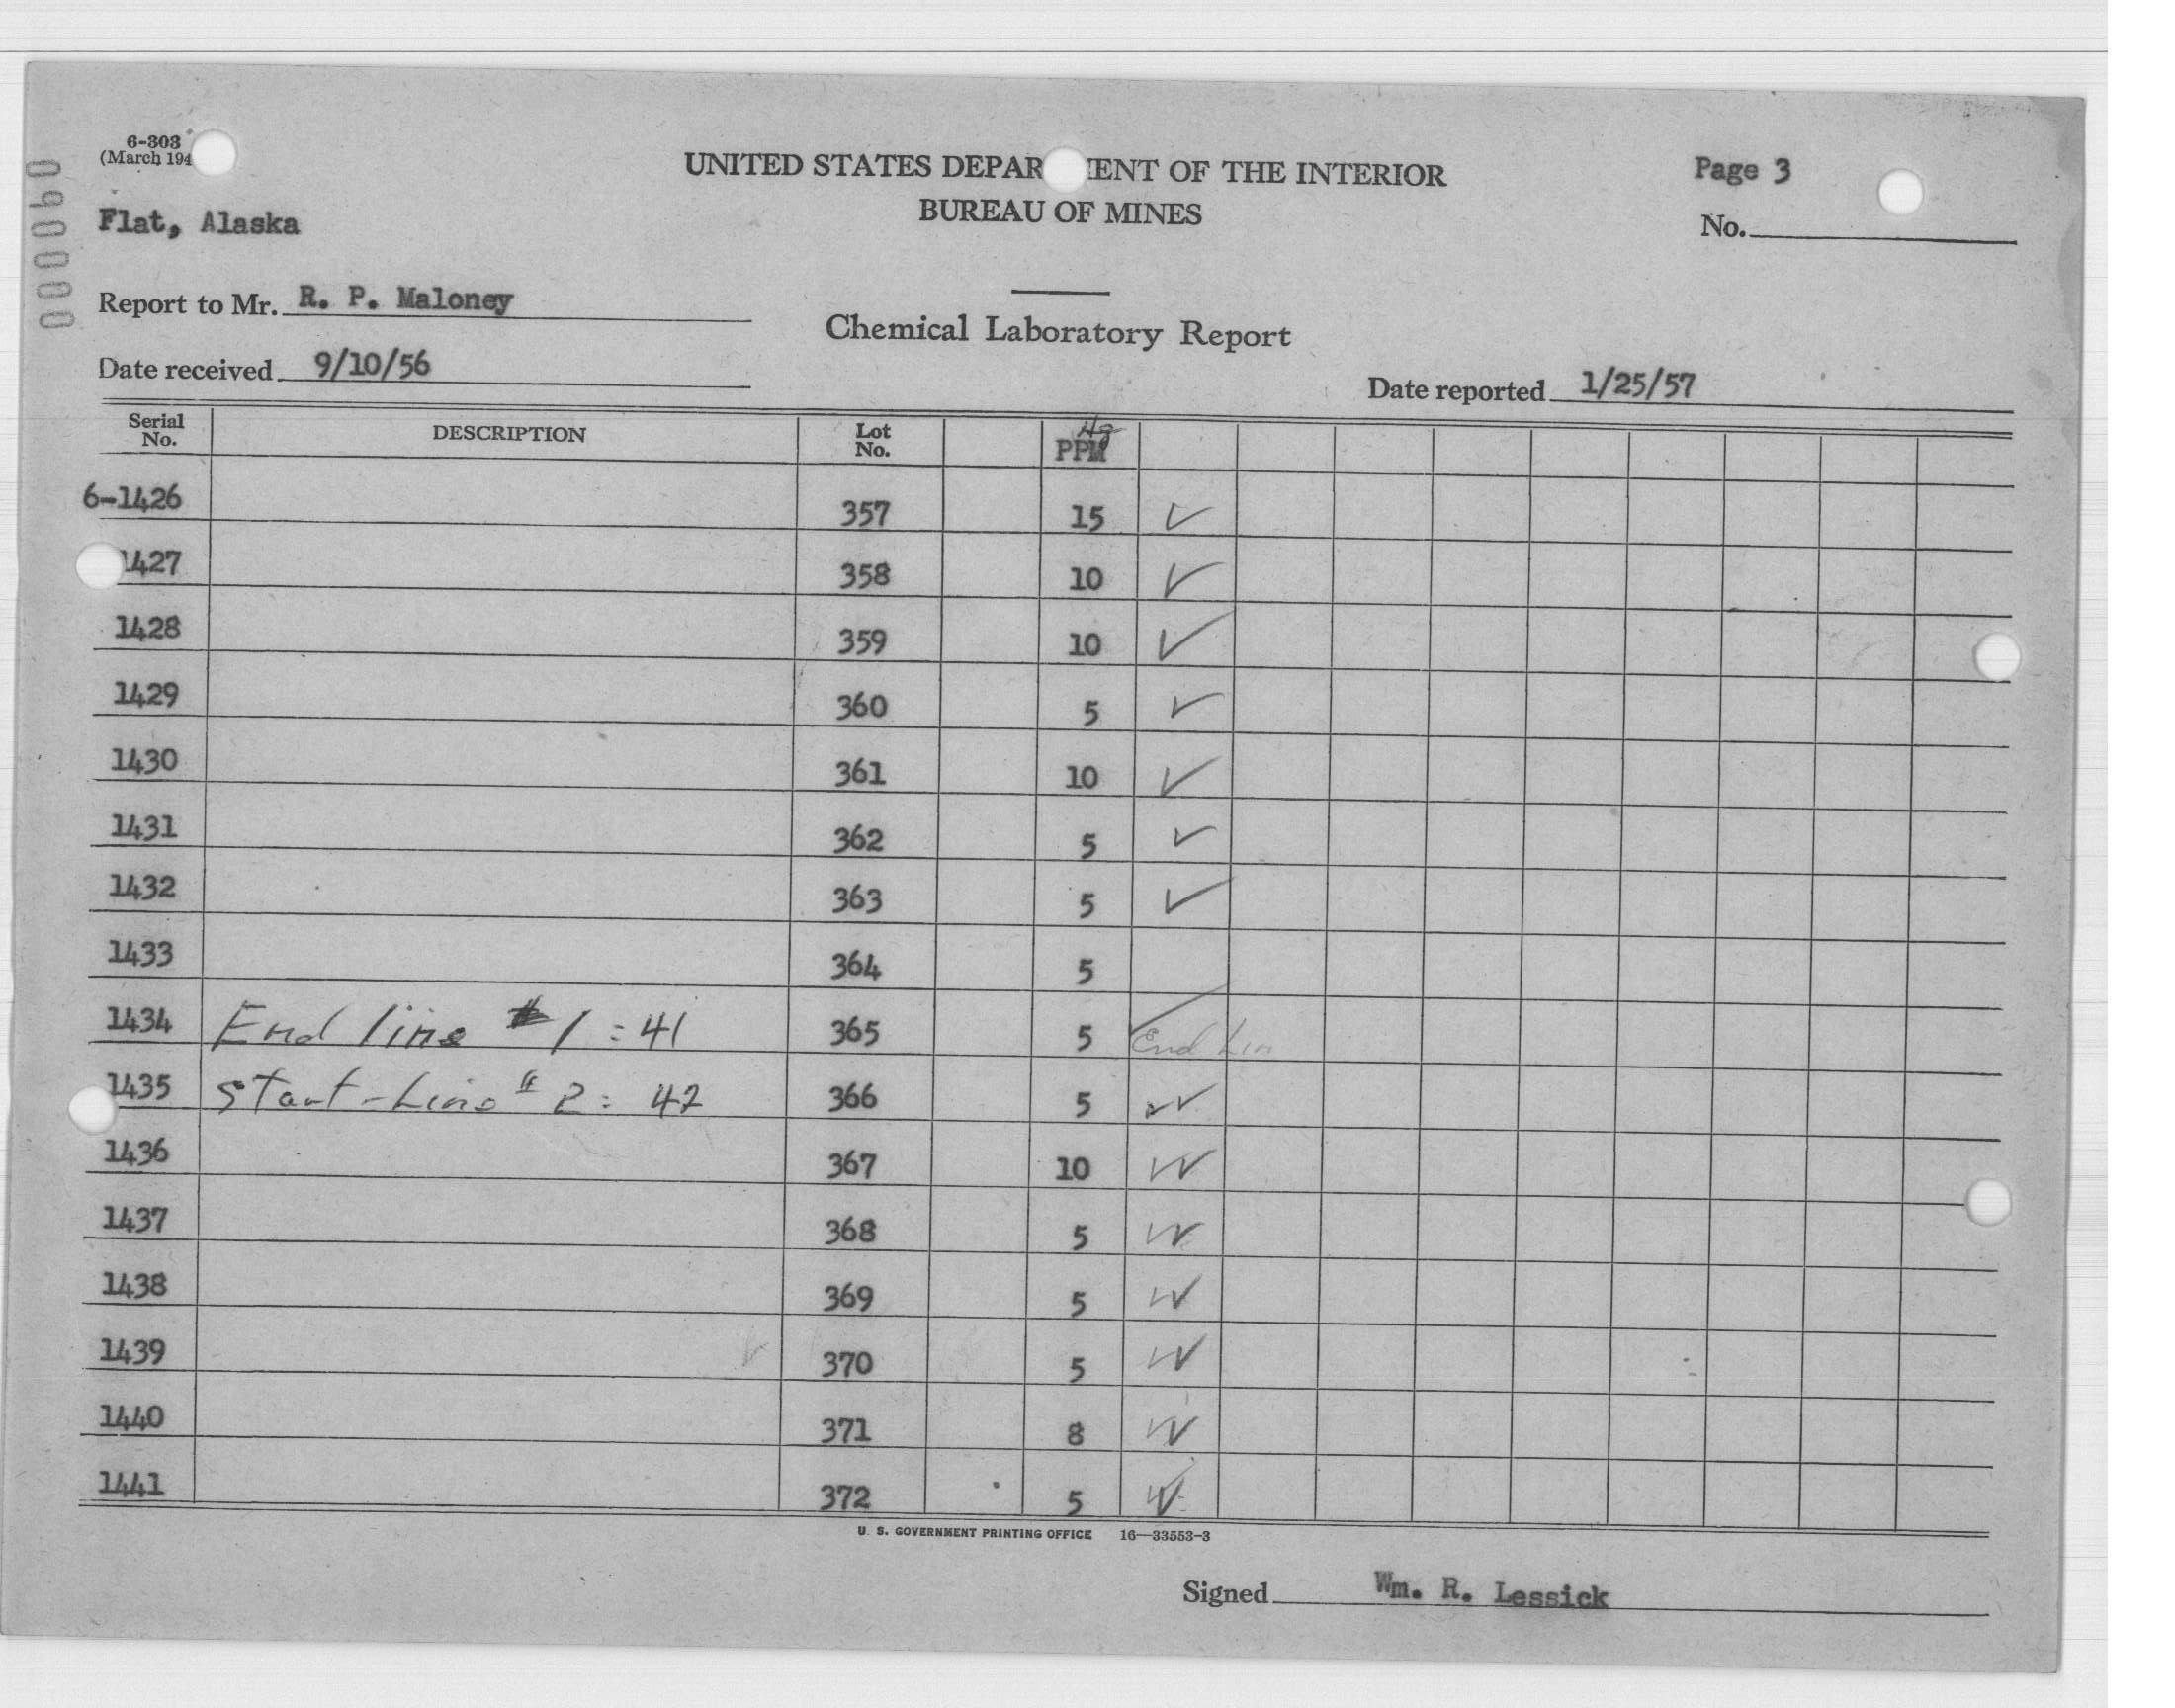 6-303
(March 194
UNITED STATES DEPAR ENT OF THE INTERIOR
BUREAU OF MINES
Page 3
No.
090000
Flat, Alaska
Report to Mr. R. P. Maloney
Chemical Laboratory Report
Date received 9/10/56
Date reported 1/25/57
Serial No. DESCRIPTION Lot No. Hg PPM
6-1426 357 15 ✓
1427 358 10 ✓
1428 359 10 ✓
1429 360 5 ✓
1430 361 10 ✓
1431 362 5 ✓
1432 363 5 ✓
1433 364 5
1434 End line #1 : 41 365 5 ✓ End Lin
1435 Start-Line # 2: 42 366 5 ✓✓
1436 367 10 ✓✓
1437 368 5 ✓✓
1438 369 5 ✓✓
1439 ✓ 370 5 ✓✓
1440 371 8 ✓✓
1441 372 5 ✓✓
U. S. GOVERNMENT PRINTING OFFICE 16—33553-3
Signed Wm. R. Lessick